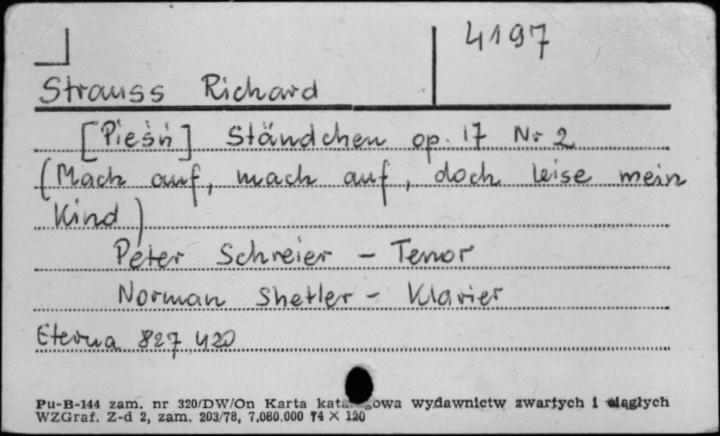 4197
Strauss Richard
[Pieśń] Ständchen op. 17 Nr 2
(Mach auf, mach auf, doch leise mein
Kind)
Peter Schreier - Tenor
Norman Shetler - Klavier
Eterna 827 420
Pu-B-144 zam. nr 320/DW/On Karta katalogowa wydawnictw zwartych i ciągłych
WZGraf. Z-d 2, zam. 203/78, 7.080.000 74 × 120